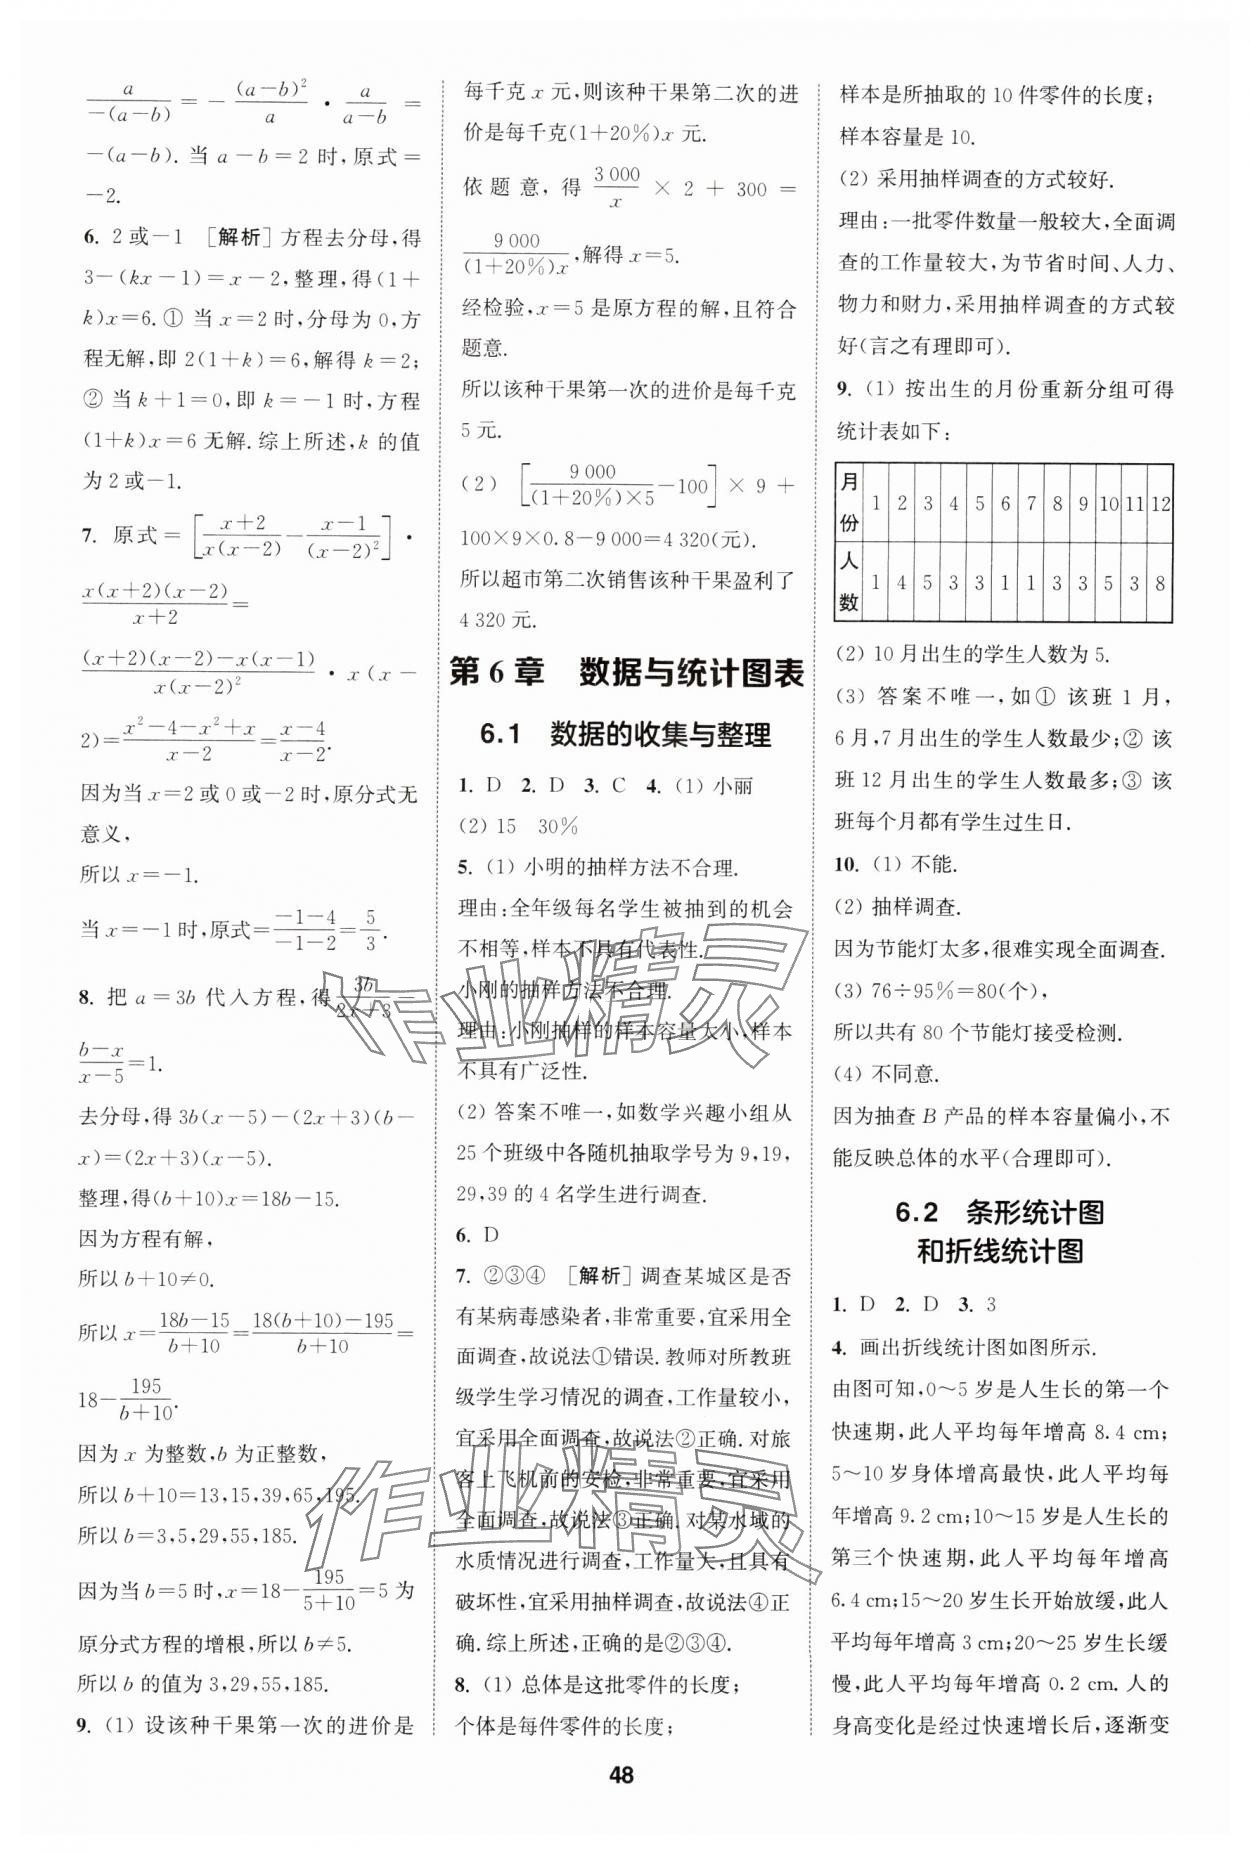 a/−(a−b) = −(a−b)²/a · a/(a−b) =
−(a−b). 当 a−b=2 时,原式=
−2.
6. 2或−1 [解析]方程去分母,得
3−(kx−1)=x−2,整理,得(1+
k)x=6.① 当 x=2 时,分母为 0,方
程无解,即 2(1+k)=6,解得 k=2;
② 当 k+1=0,即 k=−1 时,方程
(1+k)x=6 无解.综上所述,k 的值
为 2 或−1.
7. 原式=[(x+2)/(x(x−2)) − (x−1)/(x−2)²] ·
x(x+2)(x−2)/(x+2) =
((x+2)(x−2)−x(x−1))/(x(x−2)²) · x(x−
2)=(x²−4−x²+x)/(x−2)=(x−4)/(x−2).
因为当 x=2 或 0 或−2 时,原分式无
意义,
所以 x=−1.
当 x=−1 时,原式=(−1−4)/(−1−2)=5/3.
8. 把 a=3b 代入方程,得 3b/(2x+3) −
(b−x)/(x−5)=1.
去分母,得 3b(x−5)−(2x+3)(b−
x)=(2x+3)(x−5).
整理,得(b+10)x=18b−15.
因为方程有解,
所以 b+10≠0.
所以 x=(18b−15)/(b+10)=(18(b+10)−195)/(b+10)=
18−195/(b+10).
因为 x 为整数,b 为正整数,
所以 b+10=13,15,39,65,195.
所以 b=3,5,29,55,185.
因为当 b=5 时,x=18−195/(5+10)=5 为
原分式方程的增根,所以 b≠5.
所以 b 的值为 3,29,55,185.
9. (1) 设该种干果第一次的进价是
每千克 x 元,则该种干果第二次的进
价是每千克(1+20%)x 元.
依题意,得 3 000/x × 2 + 300 =
9 000/((1+20%)x),解得 x=5.
经检验,x=5 是原方程的解,且符合
题意.
所以该种干果第一次的进价是每千克
5 元.
(2) [9 000/((1+20%)×5)−100] × 9 +
100×9×0.8−9 000=4 320(元).
所以超市第二次销售该种干果盈利了
4 320 元.
第 6 章 数据与统计图表
6.1 数据的收集与整理
1. D 2. D 3. C 4. (1) 小丽
(2) 15 30%
5. (1) 小明的抽样方法不合理.
理由:全年级每名学生被抽到的机会
不相等,样本不具有代表性.
小刚的抽样方法不合理.
理由:小刚抽样的样本容量太小,样本
不具有广泛性.
(2) 答案不唯一,如数学兴趣小组从
25 个班级中各随机抽取学号为 9,19,
29,39 的 4 名学生进行调查.
6. D
7. ②③④ [解析]调查某城区是否
有某病毒感染者,非常重要,宜采用全
面调查,故说法①错误.教师对所教班
级学生学习情况的调查,工作量较小,
宜采用全面调查,故说法②正确.对旅
客上飞机前的安检,非常重要,宜采用
全面调查,故说法③正确.对某水域的
水质情况进行调查,工作量大,且具有
破坏性,宜采用抽样调查,故说法④正
确.综上所述,正确的是②③④.
8. (1) 总体是这批零件的长度;
个体是每件零件的长度;
样本是所抽取的 10 件零件的长度;
样本容量是 10.
(2) 采用抽样调查的方式较好.
理由:一批零件数量一般较大,全面调
查的工作量较大,为节省时间、人力、
物力和财力,采用抽样调查的方式较
好(言之有理即可).
9. (1) 按出生的月份重新分组可得
统计表如下:
月份 1 2 3 4 5 6 7 8 9 10 11 12
人数 1 4 5 3 3 1 1 3 3 5 3 8
(2) 10 月出生的学生人数为 5.
(3) 答案不唯一,如① 该班 1 月,
6 月,7 月出生的学生人数最少;② 该
班 12 月出生的学生人数最多;③ 该
班每个月都有学生过生日.
10. (1) 不能.
(2) 抽样调查.
因为节能灯太多,很难实现全面调查.
(3) 76÷95%=80(个),
所以共有 80 个节能灯接受检测.
(4) 不同意.
因为抽查 B 产品的样本容量偏小,不
能反映总体的水平(合理即可).
6.2 条形统计图
和折线统计图
1. D 2. D 3. 3
4. 画出折线统计图如图所示.
由图可知,0～5 岁是人生长的第一个
快速期,此人平均每年增高 8.4 cm;
5～10 岁身体增高最快,此人平均每
年增高 9.2 cm;10～15 岁是人生长的
第三个快速期,此人平均每年增高
6.4 cm;15～20 岁生长开始放缓,此人
平均每年增高 3 cm;20～25 岁生长缓
慢,此人平均每年增高 0.2 cm.人的
身高变化是经过快速增长后,逐渐变
48
作业精灵
作业精灵